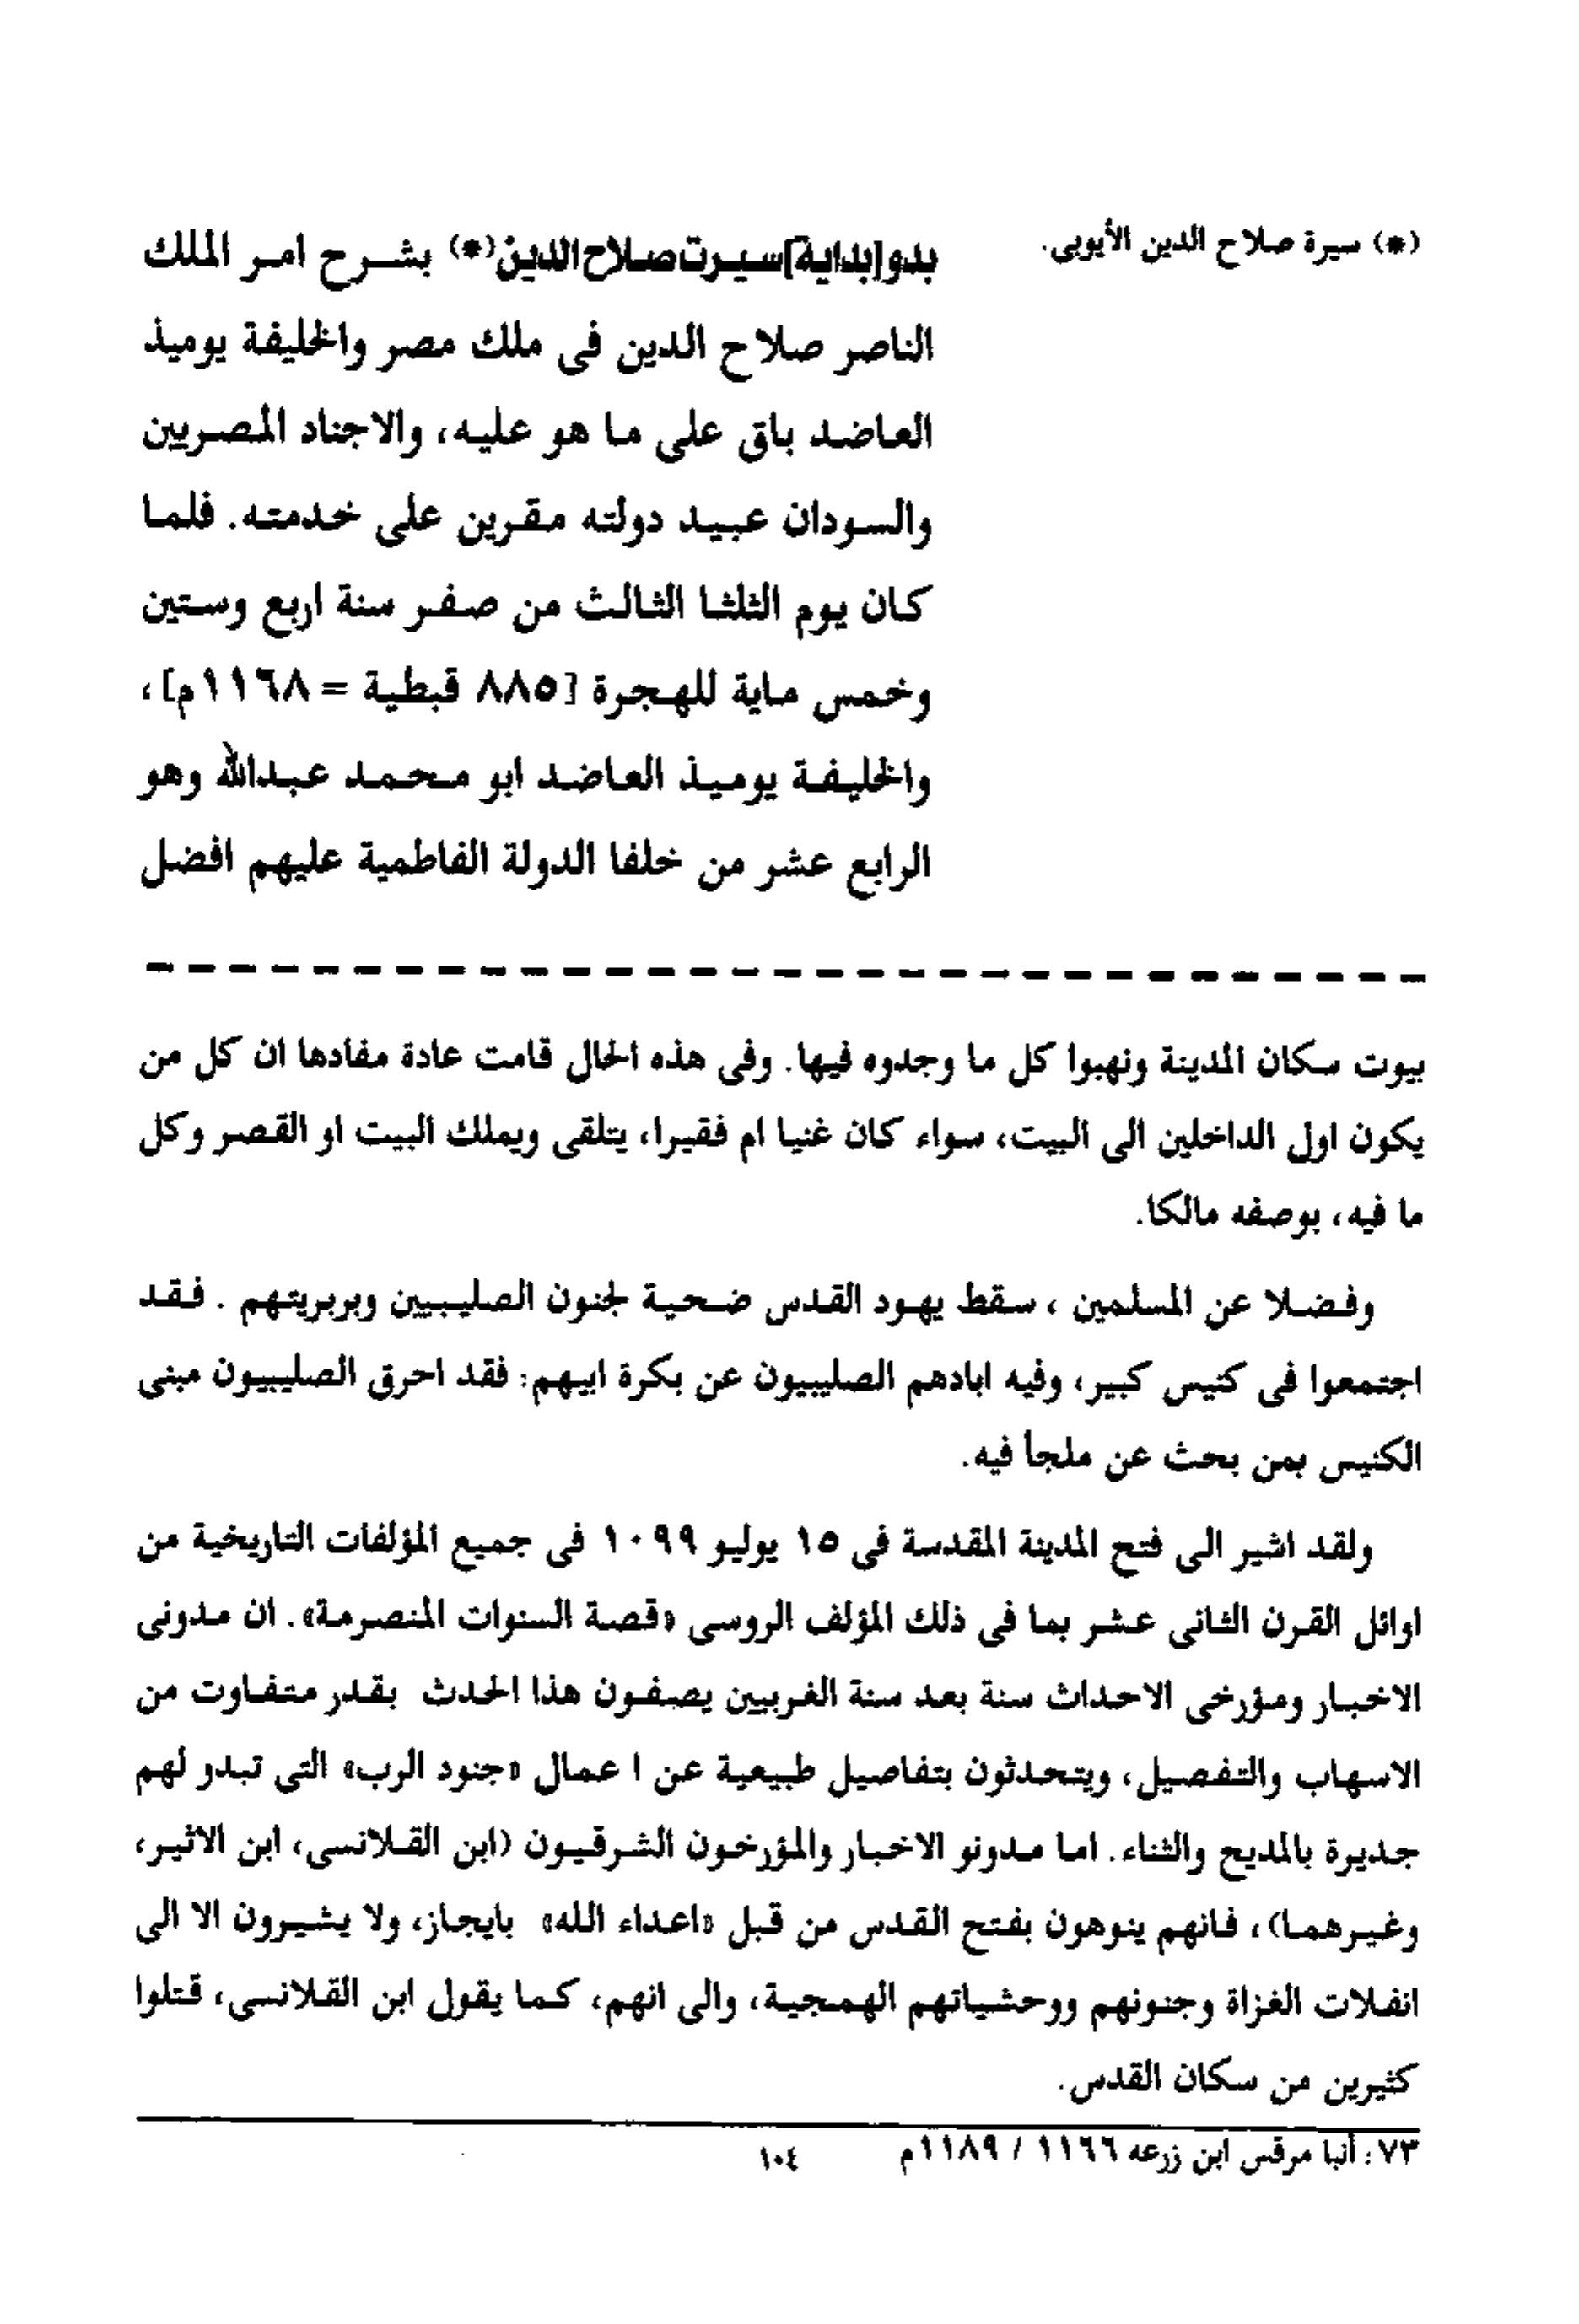 (*) سيرة صلاح الدين الأيوبى.
بدو[بداية]سيرت صلاح الدين(*) بشرح امر الملك
الناصر صلاح الدين فى ملك مصر والخليفة يوميذ
العاضد باق على ما هو عليه، والاجناد المصريين
والسودان عبيد دولته مقرين على خدمته. فلما
كان يوم الثلثا الثالث من صفر سنة اربع وستين
وخمس ماية للهجرة [٨٨٥ قبطية = ١١٦٨م]،
والخليفة يوميذ العاضد ابو محمد عبدالله وهو
الرابع عشر من خلفا الدولة الفاطمية عليهم افضل
بيوت سكان المدينة ونهبوا كل ما وجدوه فيها. وفى هذه الحال قامت عادة مفادها ان كل من
يكون اول الداخلين الى البيت، سواء كان غنيا ام فقيرا، يتلقى ويملك البيت او القصر وكل
ما فيه، بوصفه مالكا.
وفضلا عن المسلمين ، سقط يهود القدس ضحية لجنون الصليبيين وبربريتهم . فقد
اجتمعوا فى كنيس كبير، وفيه ابادهم الصليبيون عن بكرة ابيهم: فقد احرق الصليبيون مبنى
الكنيس بمن بحث عن ملجأ فيه.
ولقد اشير الى فتح المدينة المقدسة فى ١٥ يوليو ١٠٩٩ فى جميع المؤلفات التاريخية من
اوائل القرن الثانى عشر بما فى ذلك المؤلف الروسى «قصة السنوات المنصرمة». ان مدونى
الاخبار ومؤرخى الاحداث سنة بعد سنة الغربيين يصفون هذا الحدث بقدر متفاوت من
الاسهاب والتفصيل، ويتحدثون بتفاصيل طبيعية عن ا عمال «جنود الرب» التى تبدو لهم
جديرة بالمديح والثناء. اما مدونو الاخبار والمؤرخون الشرقيون (ابن القلانسى، ابن الاثير،
وغيرهما)، فانهم ينوهون بفتح القدس من قبل «اعداء الله» بايجاز، ولا يشيرون الا الى
انفلات الغزاة وجنونهم ووحشياتهم الهمجية، والى انهم، كما يقول ابن القلانسى، قتلوا
كثيرين من سكان القدس.
٧٣: أنبا مرقس ابن زرعه ١١٦٦ / ١١٨٩م ١٠٤